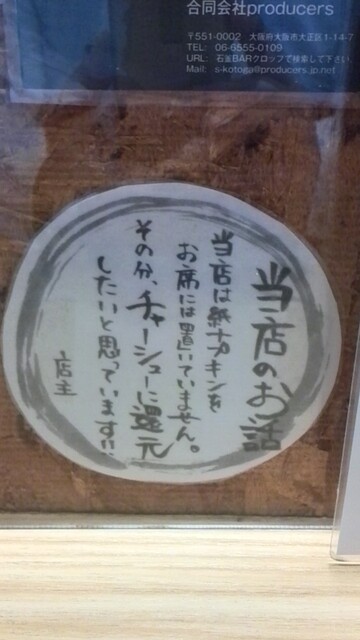 合同会社producers
〒551-0002 大阪府大阪市大正区1-14-7
TEL: 06-6555-0109
URL: 石釜BARクロップで検索して下さい。
Mail: s-kotoga@producers.jp.net
当店のお話
当店は紙ナプキンを
お席には置いていません。
その分、チャーシューに還元
したいと思っています!!
店主